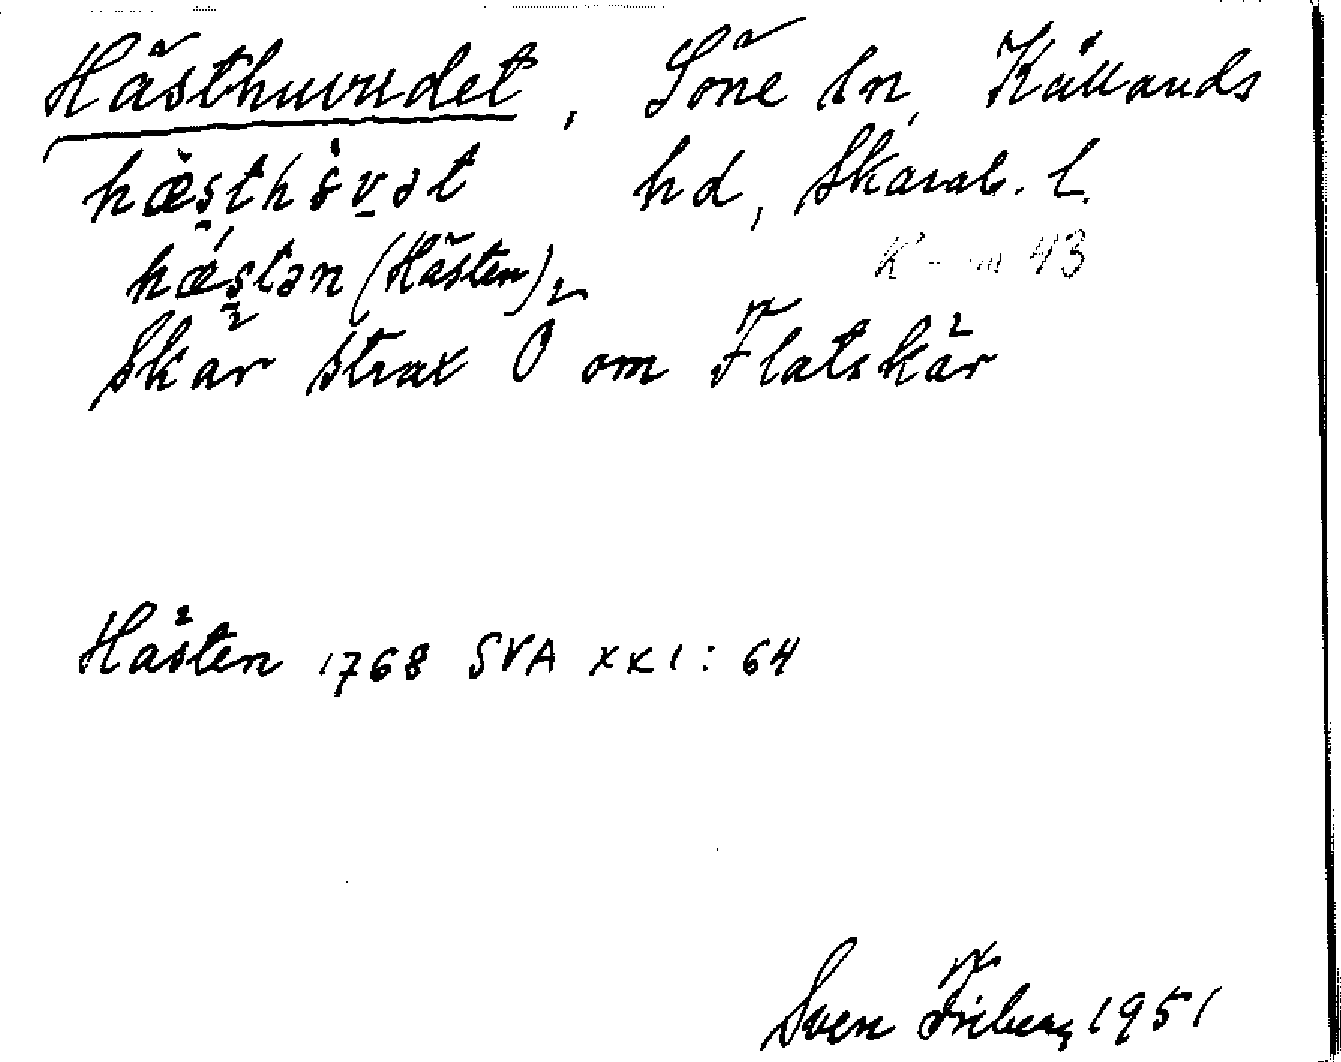 Hästhuvudet, Söne sn, Kållands
hæ̀sthö̀vət hd, Skarab. l.
hǽstən (Hästen),
43
Skär strax O om Flatskär
Hästen 1768 SVA XXI: 64
Sven Friberg 1951